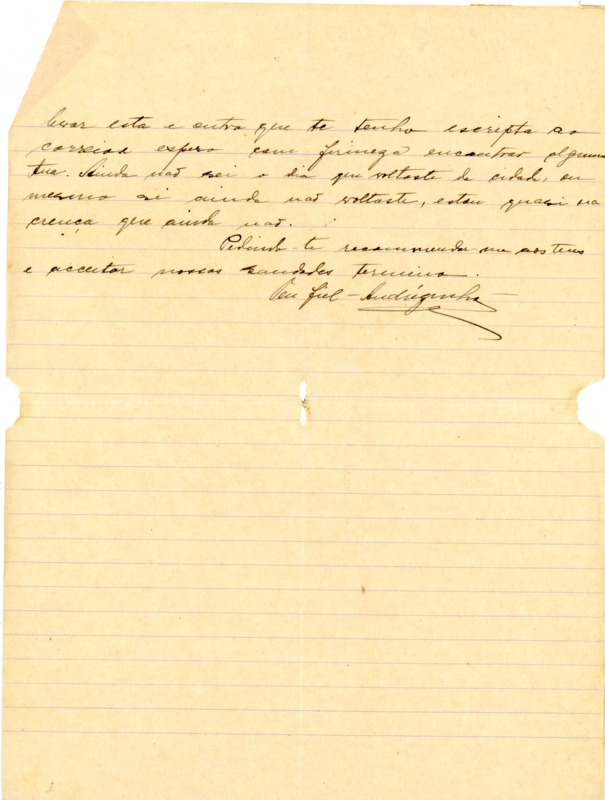 levar esta e outra que te tenho escripta ao
correio e espero com firmeza encontrar alguma
tua. Ainda não sei o dia que voltaste da cidade, ou
mesmo si ainda não voltaste, estou quasi na
crença que ainda não.
Pedindo-te recommendar-me aos teus
e acceitar nossas saudades termino.
Teu fiel - Andrézinho